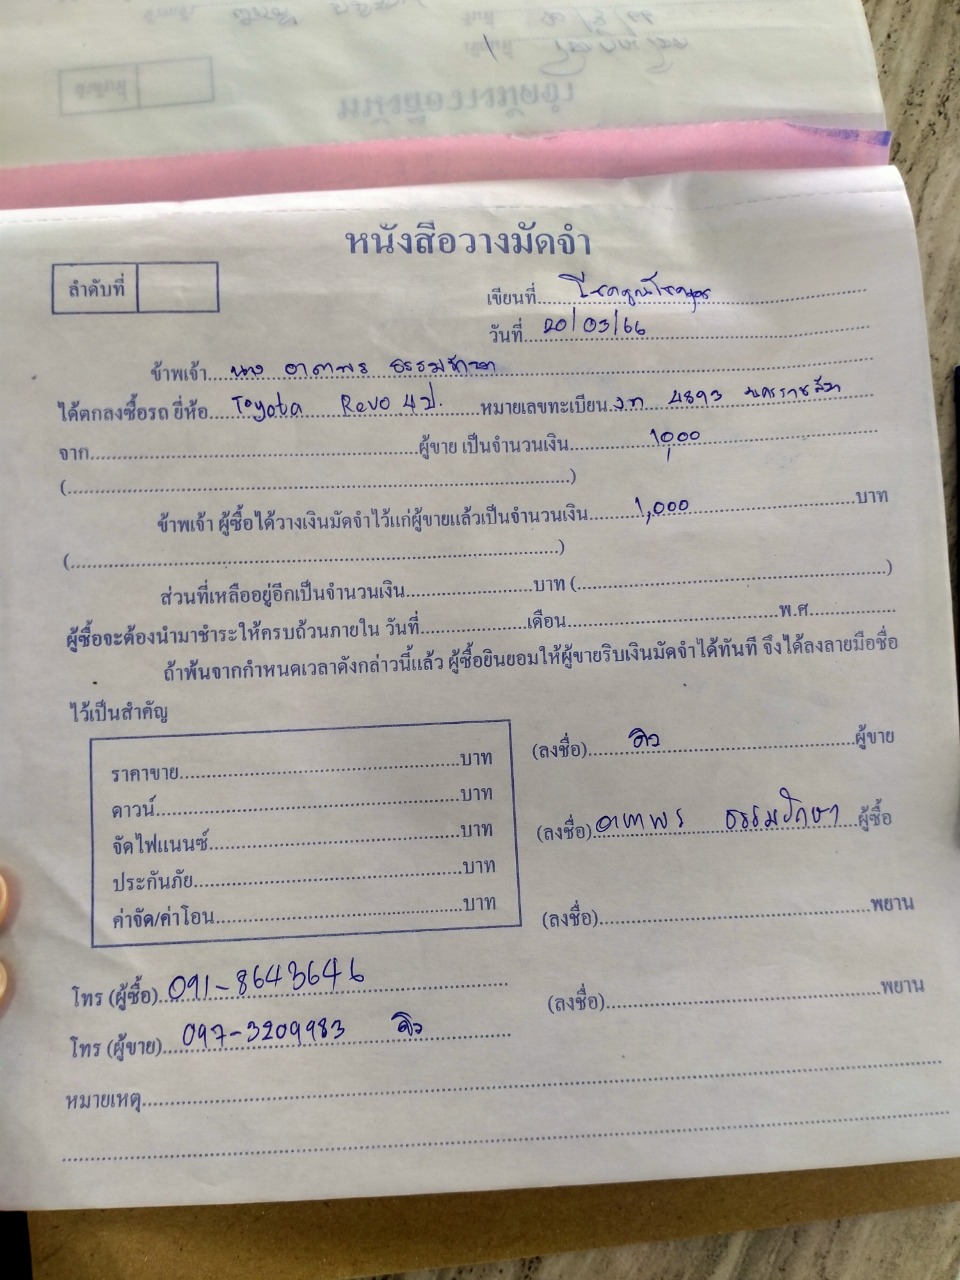 หนังสือวางมัดจำ
ลำดับที่
เขียนที่
วันที่ 20/03/66
ข้าพเจ้า นาง อาภาพร ธรรมรักษา
ได้ตกลงซื้อรถ ยี่ห้อ Toyota Revo 4ป. หมายเลขทะเบียน 4893 นครราชสีมา
จาก ผู้ขาย เป็นจำนวนเงิน 1,000
( )
ข้าพเจ้า ผู้ซื้อได้วางเงินมัดจำไว้แก่ผู้ขายแล้วเป็นจำนวนเงิน 1,000 บาท
( )
ส่วนที่เหลืออยู่อีกเป็นจำนวนเงิน บาท ( )
ผู้ซื้อจะต้องนำมาชำระให้ครบถ้วนภายใน วันที่ เดือน พ.ศ.
ถ้าพ้นจากกำหนดเวลาดังกล่าวนี้แล้ว ผู้ซื้อยินยอมให้ผู้ขายริบเงินมัดจำได้ทันที จึงได้ลงลายมือชื่อ
ไว้เป็นสำคัญ
ราคาขาย บาท
ดาวน์ บาท
จัดไฟแนนซ์ บาท
ประกันภัย บาท
ค่าจัด/ค่าโอน บาท
(ลงชื่อ) ผู้ขาย
(ลงชื่อ) อาภาพร ธรรมรักษา ผู้ซื้อ
(ลงชื่อ) พยาน
(ลงชื่อ) พยาน
โทร (ผู้ซื้อ) 091-8643646
โทร (ผู้ขาย) 097-3209983
หมายเหตุ